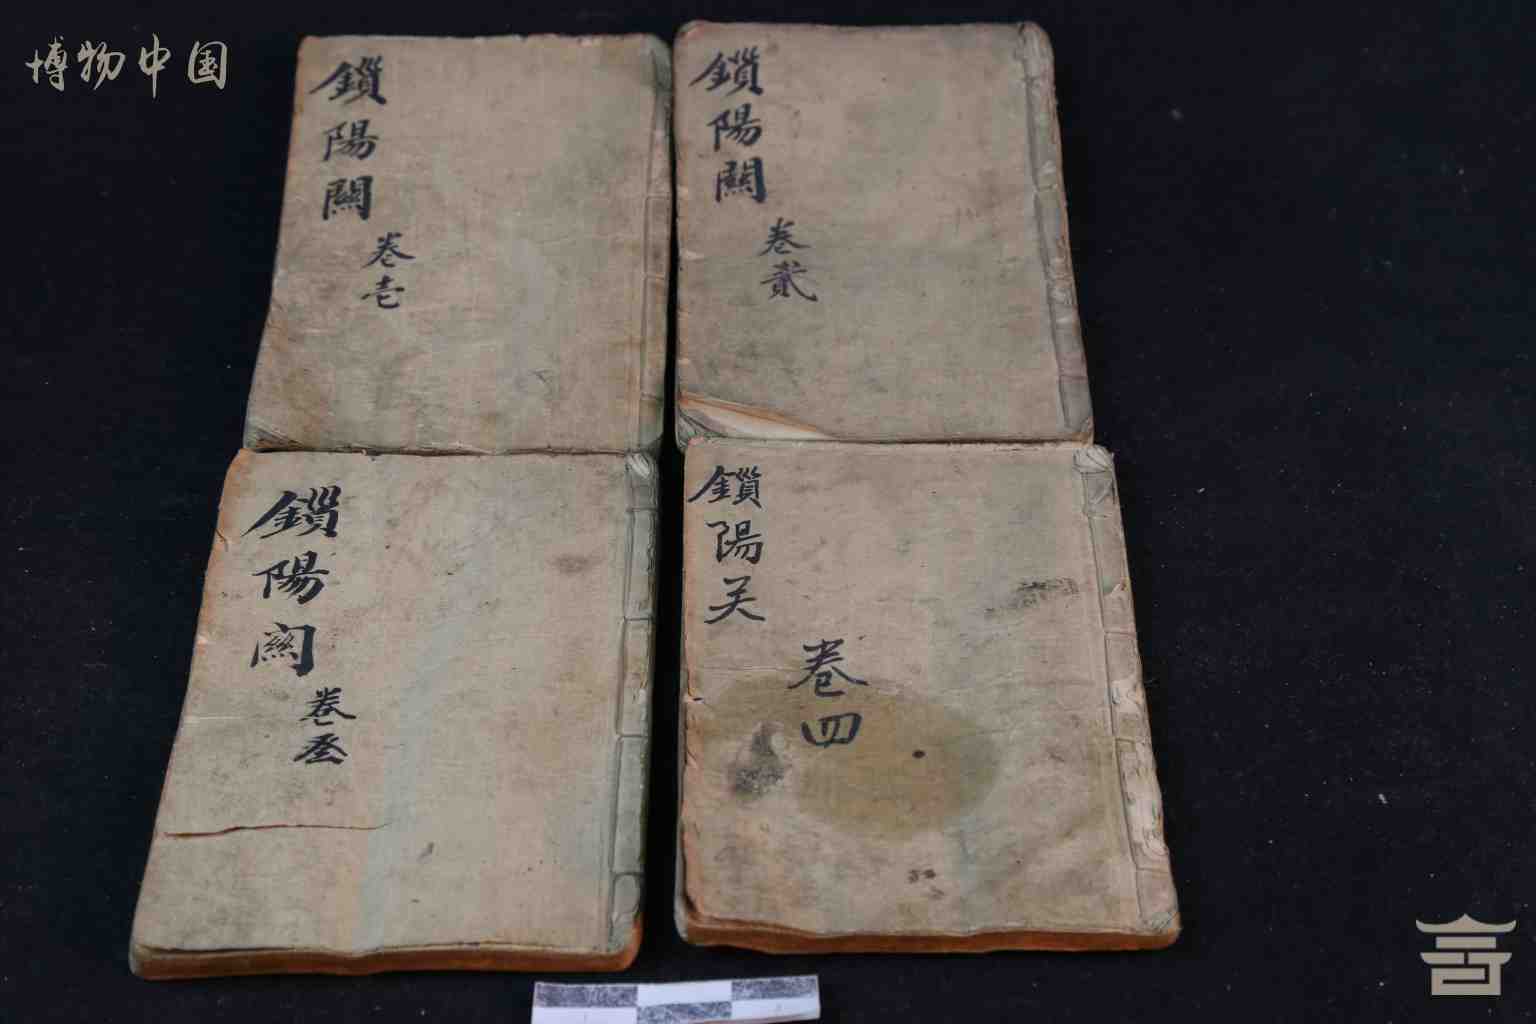 博物中国
鎖陽關
卷壱
鎖陽關
卷貳
鎖陽關
卷叁
鎖陽关
卷四